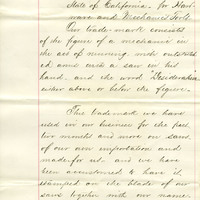 State of California, for Hard
ware and Mechanics Tools
Our trade mark consists
of the figure of a mechanic in
the act of running with outstretch
ed arms and a saw in his
hand, and the word
either above or below the figure.
This trademark we have
used in our business for the past
two months and more on saws
of our own importation and
made for us, and we have
been accustomed to have it
stamped on the blade of our
saws together with our name